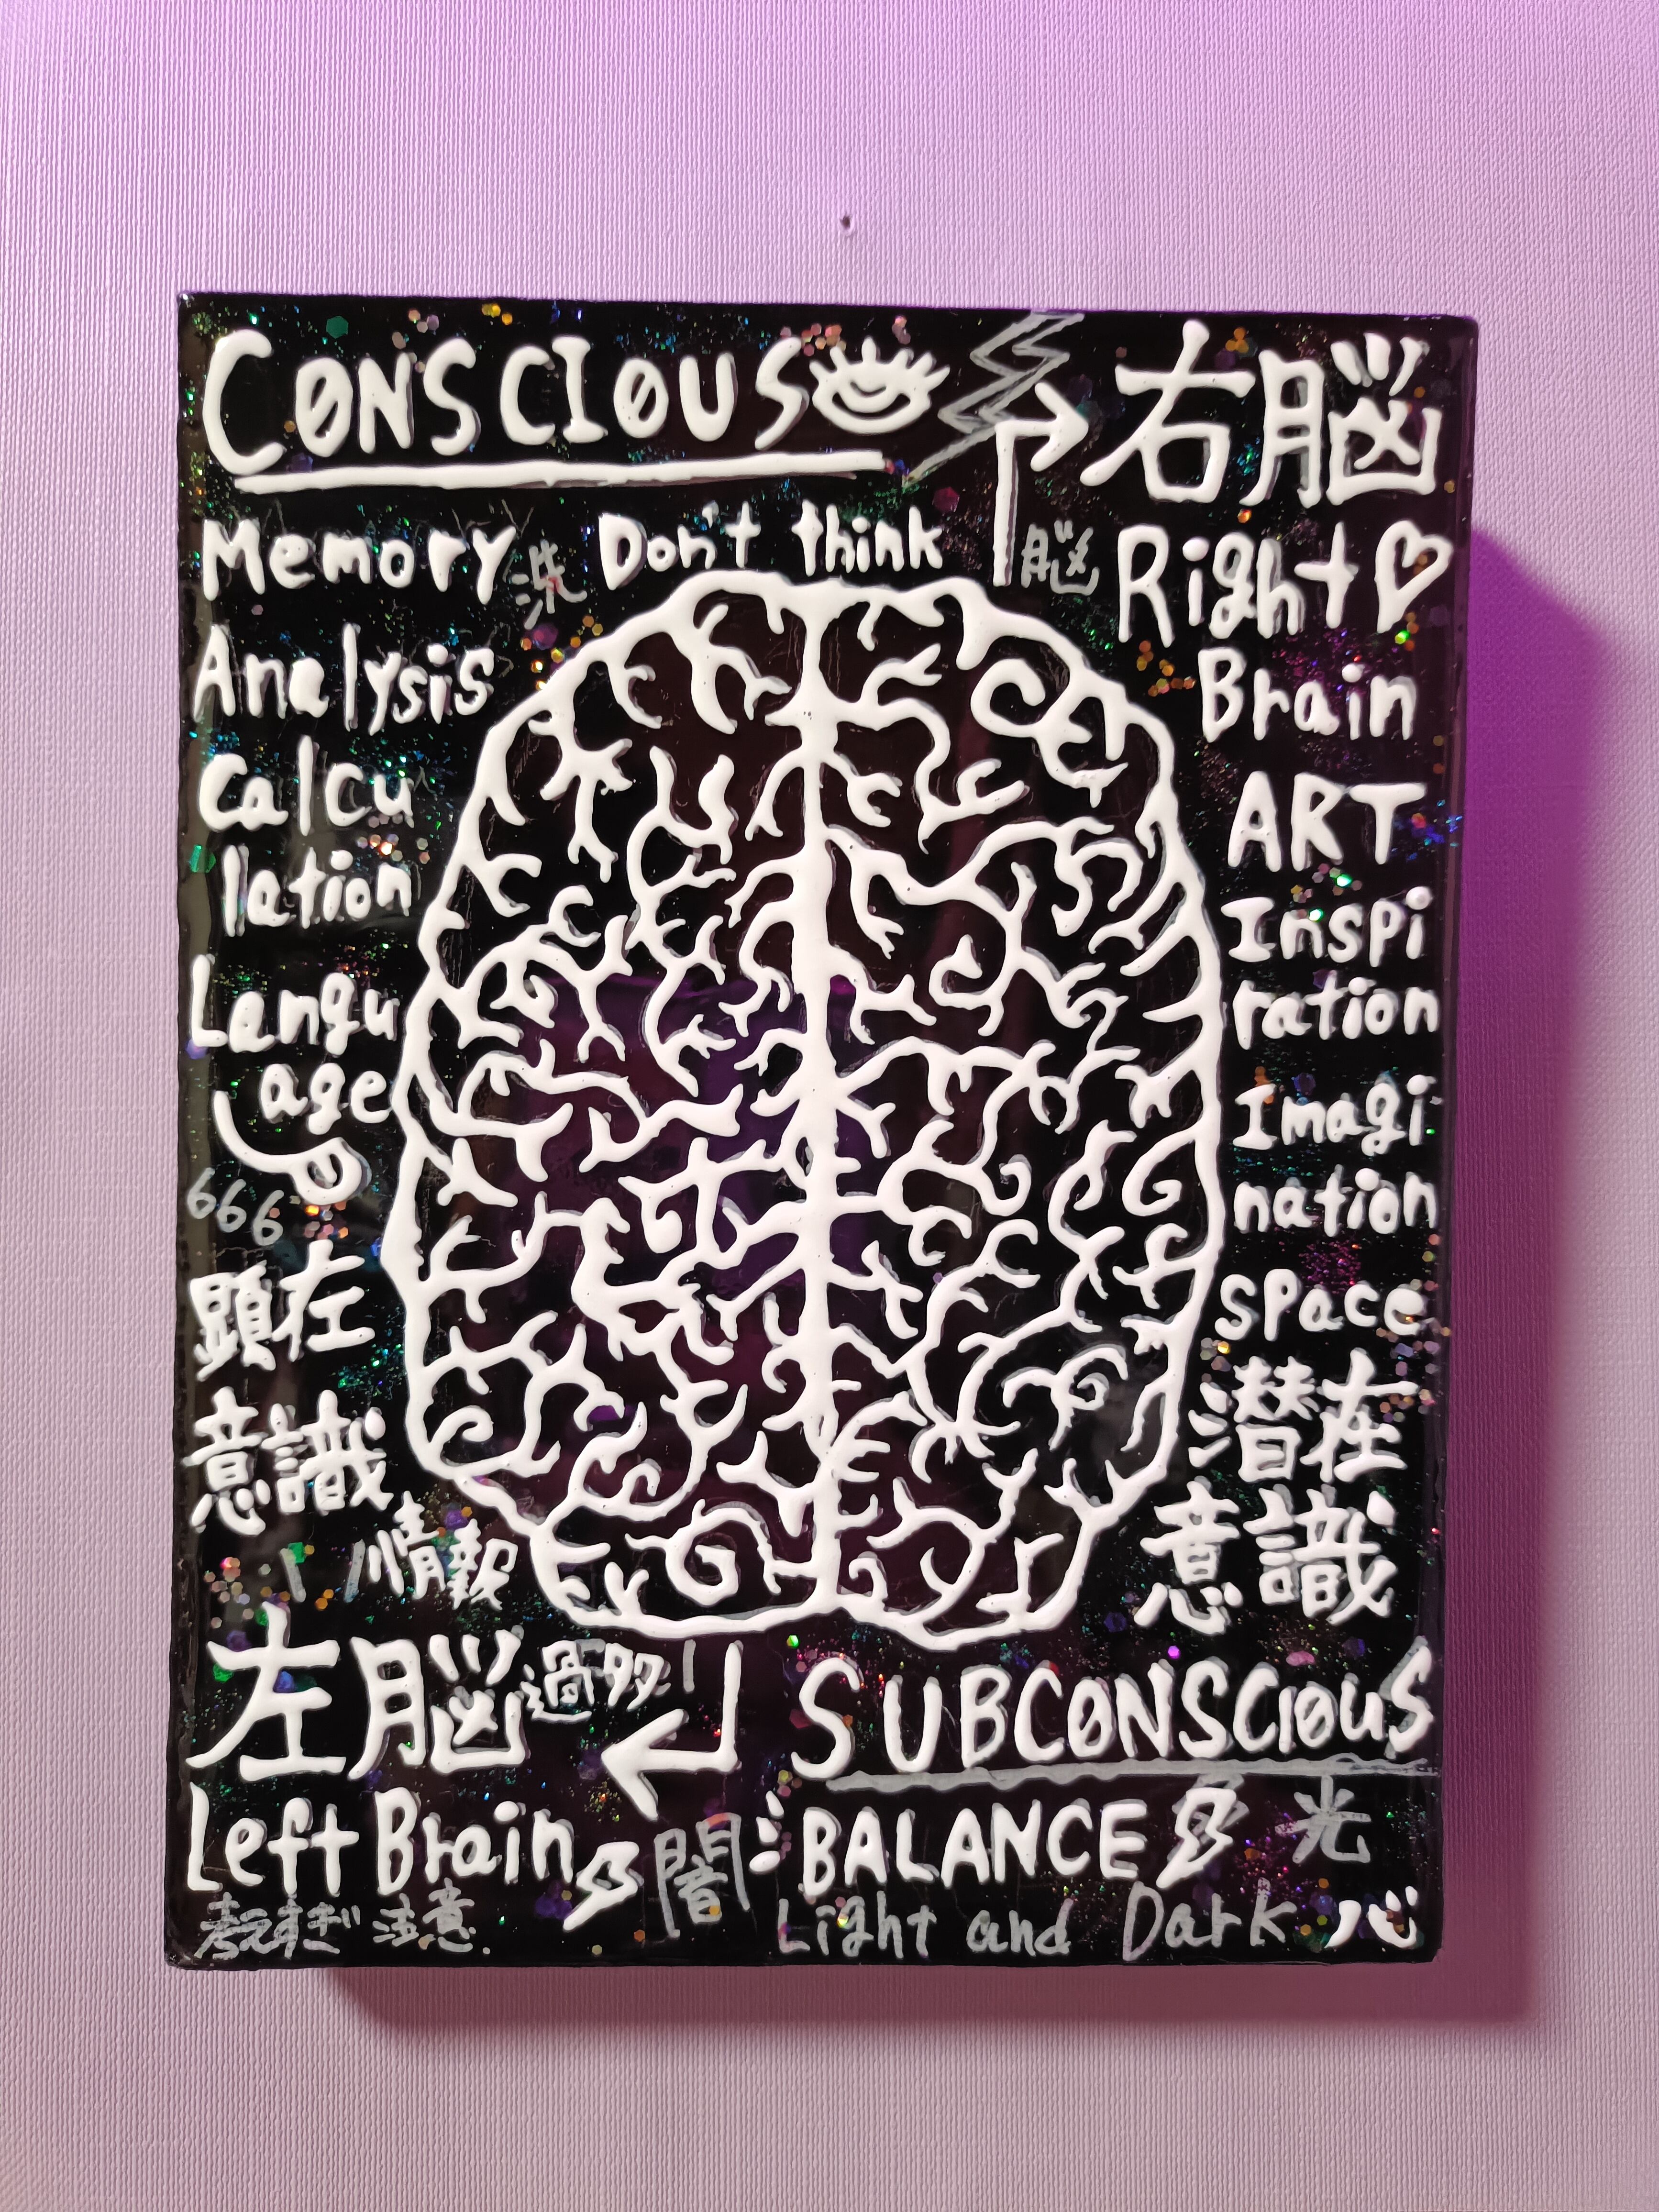 CONSCIOUS
右脳
Memory 洗 Don't think 脳
Right
Brain
Analysis
Calcu
lation
Langu
age
666
顕在
意識
情報
ART
Inspi
ration
Imagi
nation
space
潜在
意識
左脳 過多
Left Brain
考えすぎ 注意.
SUBCONSCIOUS
闇 BALANCE 光
Light and Dark 心